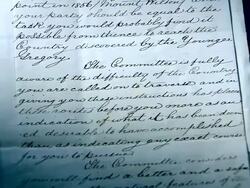 point in 1856, Mount Wilson
your party should be equal to the
task you would probably find it
possible from thence to reach the
Country discovered by the Younger
Gregory.
The Committee is fully
aware of the difficulty of the Country
you are called on to transit and in
giving you these instructions has placed
these before you more as an
indication of what it has been deem
ed desirable to have accomplished
than as indicating any exact course
for you to pursue.
The Committee considers
you will find a better and